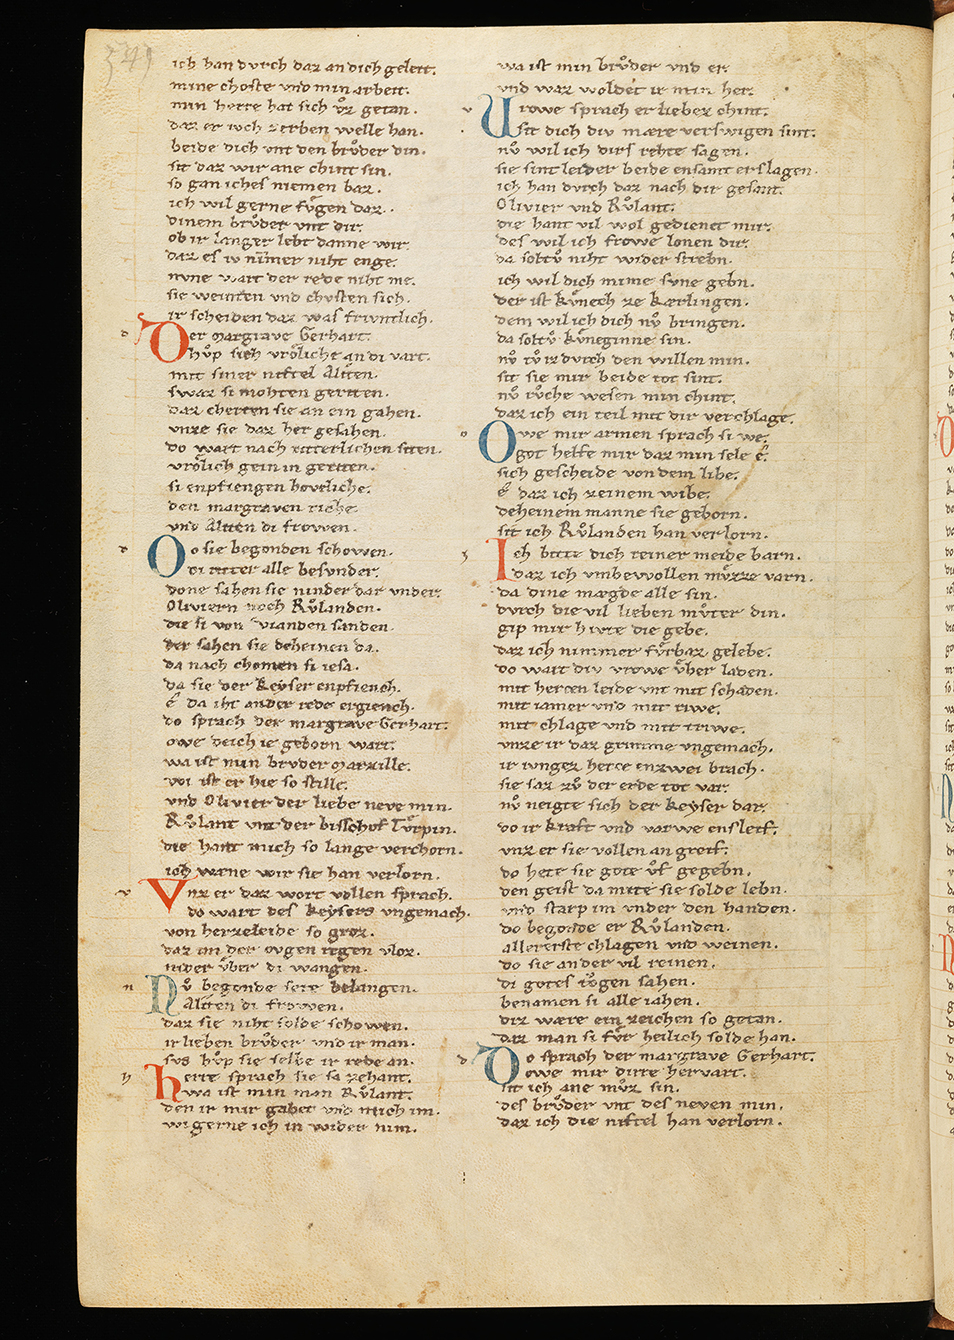 ich han dvrch daz an dich geleit.
mine choste vnd min arbeit.
min herre hat sich v͛z getan.
daz er ivch zerben welle han.
beide dich vnt den brv̊der din.
sit daz wir ane chint sin.
so gan iches niemen baz.
ich wil gerne fv̊gen daz.
dinem brv̊der vnt dir.
ob ir langer lebt danne wir.
daz es iv nimer niht enge.
nvne wart der rede niht me.
sie weinten vnd chvsten sich.
ir scheiden daz was frivntlich.
Der margrave Gerhart.
hv̊p sich vrolicht an di vart.
mit siner niftel Aliten.
swaz si mohten geriten.
daz cherten sie an ein gahen.
vnze sie daz her gesahen.
do wart nach ritterlichen siten.
vrolich gein in geriten.
si enpfiengen hovelliche.
den margraven riche
vnd Aliten di frowen.
Do sie begonden schowen.
di ritter alle besunder.
done sahen sie ninder dar vnder.
Oliviern noch Rv̊landen.
die si von vianden sanden.
der sahen sie deheinen da.
da nach chomen si iesa.
da sie der keyser enpfiench.
e da iht ander rede ergiench.
do sprach der margrave Gerhart.
owe deich ie geborn wart.
wa ist min brvder Marzille.
wi ist er hie so stille.
vnd Olivier der liebe neve min.
Rv̊lant vnt der bisschof Tv̊rpin.
die hant mich so lange verchorn.
ich wæne wir sie han verlorn.
Vnz er daz wort vollen sprach.
do wart des keysers vngemach.
von herzeleide so groz.
daz im der ovgen regen vloz.
nider v̊ber di wangen.
Nv̊ begonde sere belangen.
Aliten di frowen.
daz sie niht solde schowen.
ir lieben brv̊der vnd ir man.
svs hv̊p sie selbe ir rede an.
herre sprach sie sa zehant.
wa ist min man Rv̊lant.
den ir mir gabet vnd mich im.
wi gerne ich in wider nim.
wa ist min brv̊der vnd er
vnd waz woldet ir min her.
Vrowe sprach er liebez chint.
sit dich div mære verswigen sint.
nv̊ wil ich dirs rehte sagen.
sie sint leider beide ensamt erslagen.
ich han dvrch daz nach dir gesant.
Olivier vnd Rv̊lant.
die hant vil wol gedienet mir.
des wil ich frowe lonen dir.
da soltv niht wider strebn.
ich wil dich mime svne gebn.
der ist kv̊nech ze kærlingen.
dem wil ich dich nv̊ bringen.
da soltv kv̊neginne sin.
nv̊ tv̊ iz dvrch den willen min.
sit sie mir beide tot sint.
nv̊ rv̊che wesen min chint.
daz ich ein teil mit dir verchlage.
Owe mir armen sprach si we.
got helfe mir daz min sele e.
sich gescheide von dem libe.
e daz ich zeinem wibe.
deheinem manne sie geborn.
sit ich Rv̊landen han verlorn.
Ich bitte dich reiner meide barn.
daz ich vmbewollen mv̊zze varn.
da dine mægde alle sin.
dvrch die vil lieben mv̊ter din.
gip mir hivte die gebe.
daz ich nimmer fv̊rbaz gelebe.
do wart div vrowe v̊ber laden.
mit herzen leide vnt mit schaden.
mit iamer vnd mit riwe.
mit chlage vnd mit triwe.
vnze ir daz grimme vngemach.
ir ivngez herze enzwei brach.
sie saz zv̊ der erde tot var.
nv̊ neigte sich der keyser dar.
do ir kraft vnd varwe ensleif.
vnz er sie vollen an greif.
do hete sie gote v̊f gegebn.
den geist da mite sie solde lebn.
vnd starp im vnder den handen.
do begonde er Rv̊landen.
allererste chlagen vnd weinen.
do sie an der vil reinen.
di gotes tv̊gen sahen.
benamen si alle iahen.
diz wære ein zeichen so getan.
daz man si fv̊r heilich solde han.
Do sprach der margrave Gerhart.
owe mir dirre hervart.
sit ich ane mv̊z sin.
des brv̊der vnt des neven min.
daz ich die niftel han verlorn.